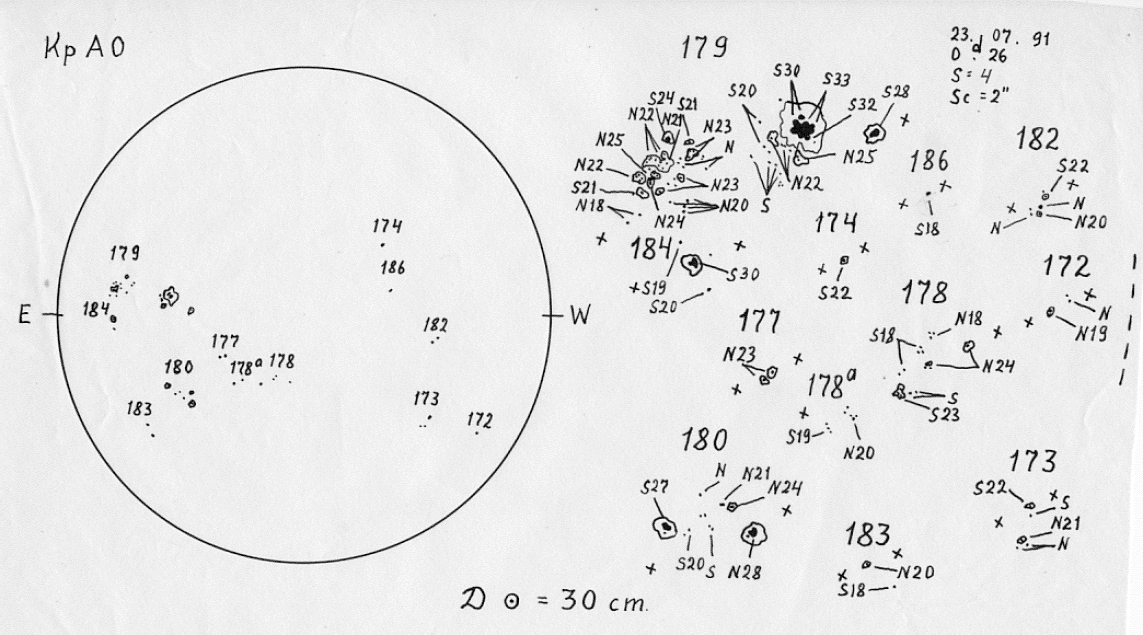 КрАО
23. 07. 91
D d 26
S = 4
Sc = 2"
E
W
179
184
180
183
177
178а
178
174
186
182
173
172
179
S30
S33
S20
S32
S28
S24
S21
N22
N21
N23
N25
N
N22
S21
N23
N18
N20
N24
S
N22
N25
184
S30
S19
S20
186
S18
182
S22
N
N
N20
174
S22
172
N
N19
178
N18
S18
N24
S
S23
177
N23
178а
S19
N20
180
N
N21
N24
S27
S20
S
N28
183
N20
S18
173
S22
S
N21
N
D ⊙ = 30 cm.